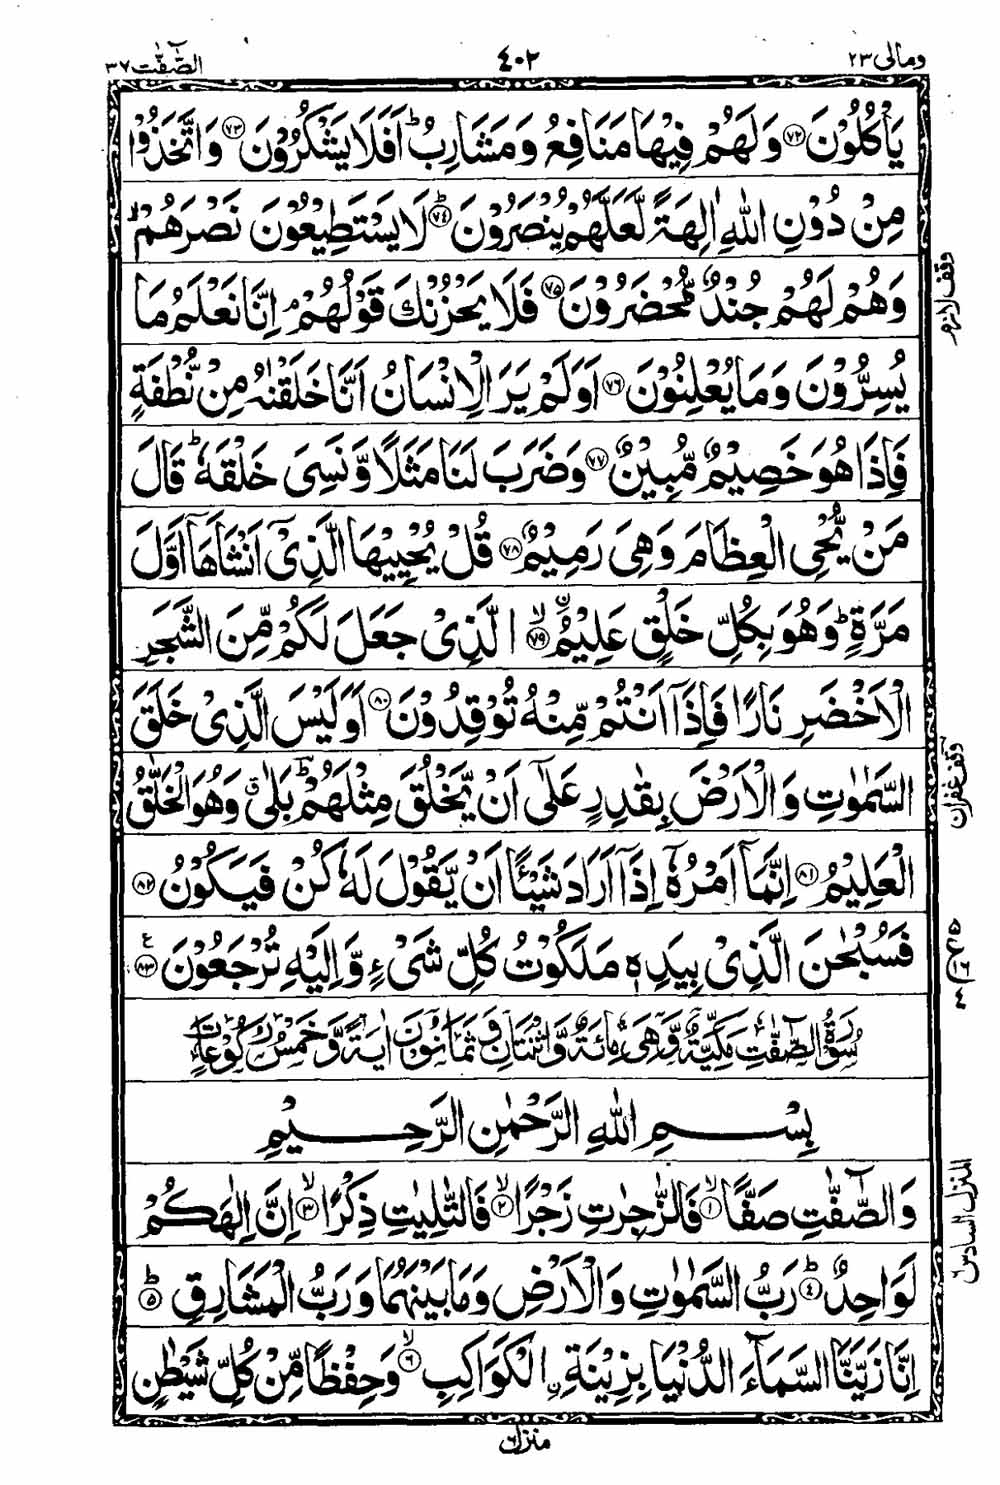 ومالی ۲۳
٤٠٢
الصّٰٓفّٰت ۳۷
يَاْكُلُوْنَ ﴿۷۲﴾ وَلَهُمْ فِيْهَا مَنَافِعُ وَمَشَارِبُ ؕ اَفَلَا يَشْكُرُوْنَ ﴿۷۳﴾ وَاتَّخَذُوْا
مِنْ دُوْنِ اللّٰهِ اٰلِهَةً لَّعَلَّهُمْ يُنْصَرُوْنَ ؕ﴿۷۴﴾ لَا يَسْتَطِيْعُوْنَ نَصْرَهُمْ ۙ
وَهُمْ لَهُمْ جُنْدٌ مُّحْضَرُوْنَ ﴿۷۵﴾ فَلَا يَحْزُنْكَ قَوْلُهُمْ ۘ اِنَّا نَعْلَمُ مَا
يُسِرُّوْنَ وَمَا يُعْلِنُوْنَ ﴿۷۶﴾ اَوَلَمْ يَرَ الْاِنْسَانُ اَنَّا خَلَقْنٰهُ مِنْ نُّطْفَةٍ
فَاِذَا هُوَ خَصِيْمٌ مُّبِيْنٌ ﴿۷۷﴾ وَضَرَبَ لَنَا مَثَلًا وَّنَسِىَ خَلْقَهٗ ؕ قَالَ
مَنْ يُّحْىِ الْعِظَامَ وَهِىَ رَمِيْمٌ ﴿۷۸﴾ قُلْ يُحْيِيْهَا الَّذِىْۤ اَنْشَاَهَاۤ اَوَّلَ
مَرَّةٍ ؕ وَهُوَ بِكُلِّ خَلْقٍ عَلِيْمُ ۙ﴿۷۹﴾ اۨلَّذِىْ جَعَلَ لَكُمْ مِّنَ الشَّجَرِ
الْاَخْضَرِ نَارًا فَاِذَاۤ اَنْتُمْ مِّنْهُ تُوْقِدُوْنَ ﴿۸۰﴾ اَوَلَيْسَ الَّذِىْ خَلَقَ
السَّمٰوٰتِ وَالْاَرْضَ بِقٰدِرٍ عَلٰٓى اَنْ يَّخْلُقَ مِثْلَهُمْ ؕ بَلٰى ۗ وَهُوَ الْخَلّٰقُ
الْعَلِيْمُ ﴿۸۱﴾ اِنَّمَاۤ اَمْرُهٗۤ اِذَاۤ اَرَادَ شَيْـًٔا اَنْ يَّقُوْلَ لَهٗ كُنْ فَيَكُوْنُ ﴿۸۲﴾
فَسُبْحٰنَ الَّذِىْ بِيَدِهٖ مَلَكُوْتُ كُلِّ شَىْءٍ وَّاِلَيْهِ تُرْجَعُوْنَ ﴿۸۳﴾ ع
سُوْرَةُ الصّٰٓفّٰتِ مَكِّيَّةٌ وَّهِىَ مِائَةٌ وَّاثْنَتَانِ وَثَمَانُوْنَ اٰيَةً وَّخَمْسُ رُكُوْعَاتٍ
بِسْمِ اللّٰهِ الرَّحْمٰنِ الرَّحِيْمِ
وَالصّٰٓفّٰتِ صَفًّا ۙ﴿۱﴾ فَالزّٰجِرٰتِ زَجْرًا ۙ﴿۲﴾ فَالتّٰلِيٰتِ ذِكْرًا ۙ﴿۳﴾ اِنَّ اِلٰهَكُمْ
لَوَاحِدٌ ؕ﴿۴﴾ رَبُّ السَّمٰوٰتِ وَالْاَرْضِ وَمَا بَيْنَهُمَا وَرَبُّ الْمَشَارِقِ ؕ﴿۵﴾
اِنَّا زَيَّنَّا السَّمَآءَ الدُّنْيَا بِزِيْنَةِ ۨالْكَوَاكِبِ ۙ﴿۶﴾ وَحِفْظًا مِّنْ كُلِّ شَيْطٰنٍ
منزل ٦
وقف لازم
وقف غفران
المنزل السادس ٦